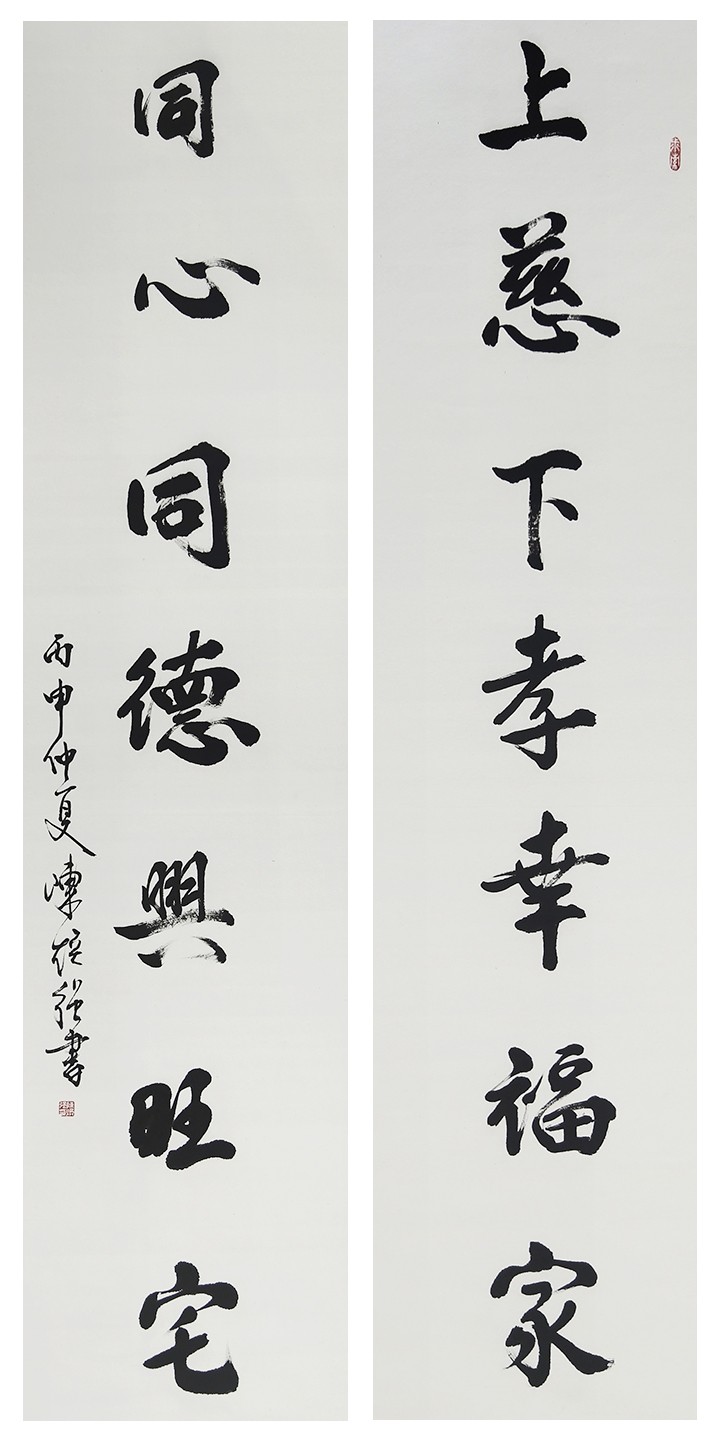 上慈下孝幸福家
同心同德興旺宅
丙申仲夏陳培強書